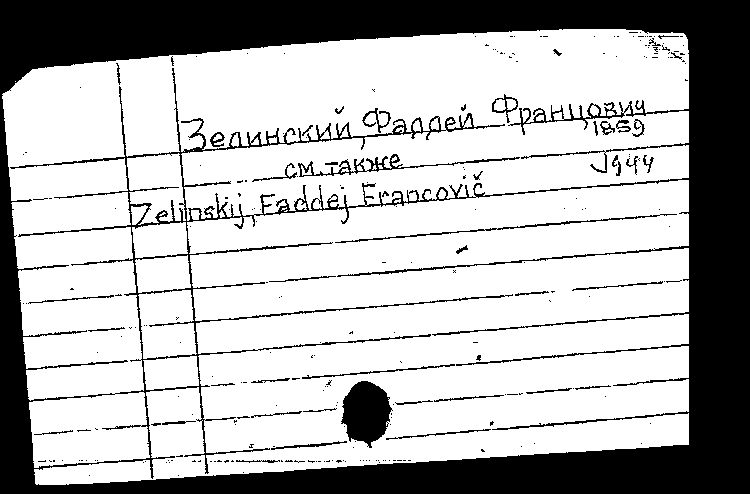 Зелинский, Фаддей Францович,
1859
см. также
1944
Zelinskij, Faddej Francovič